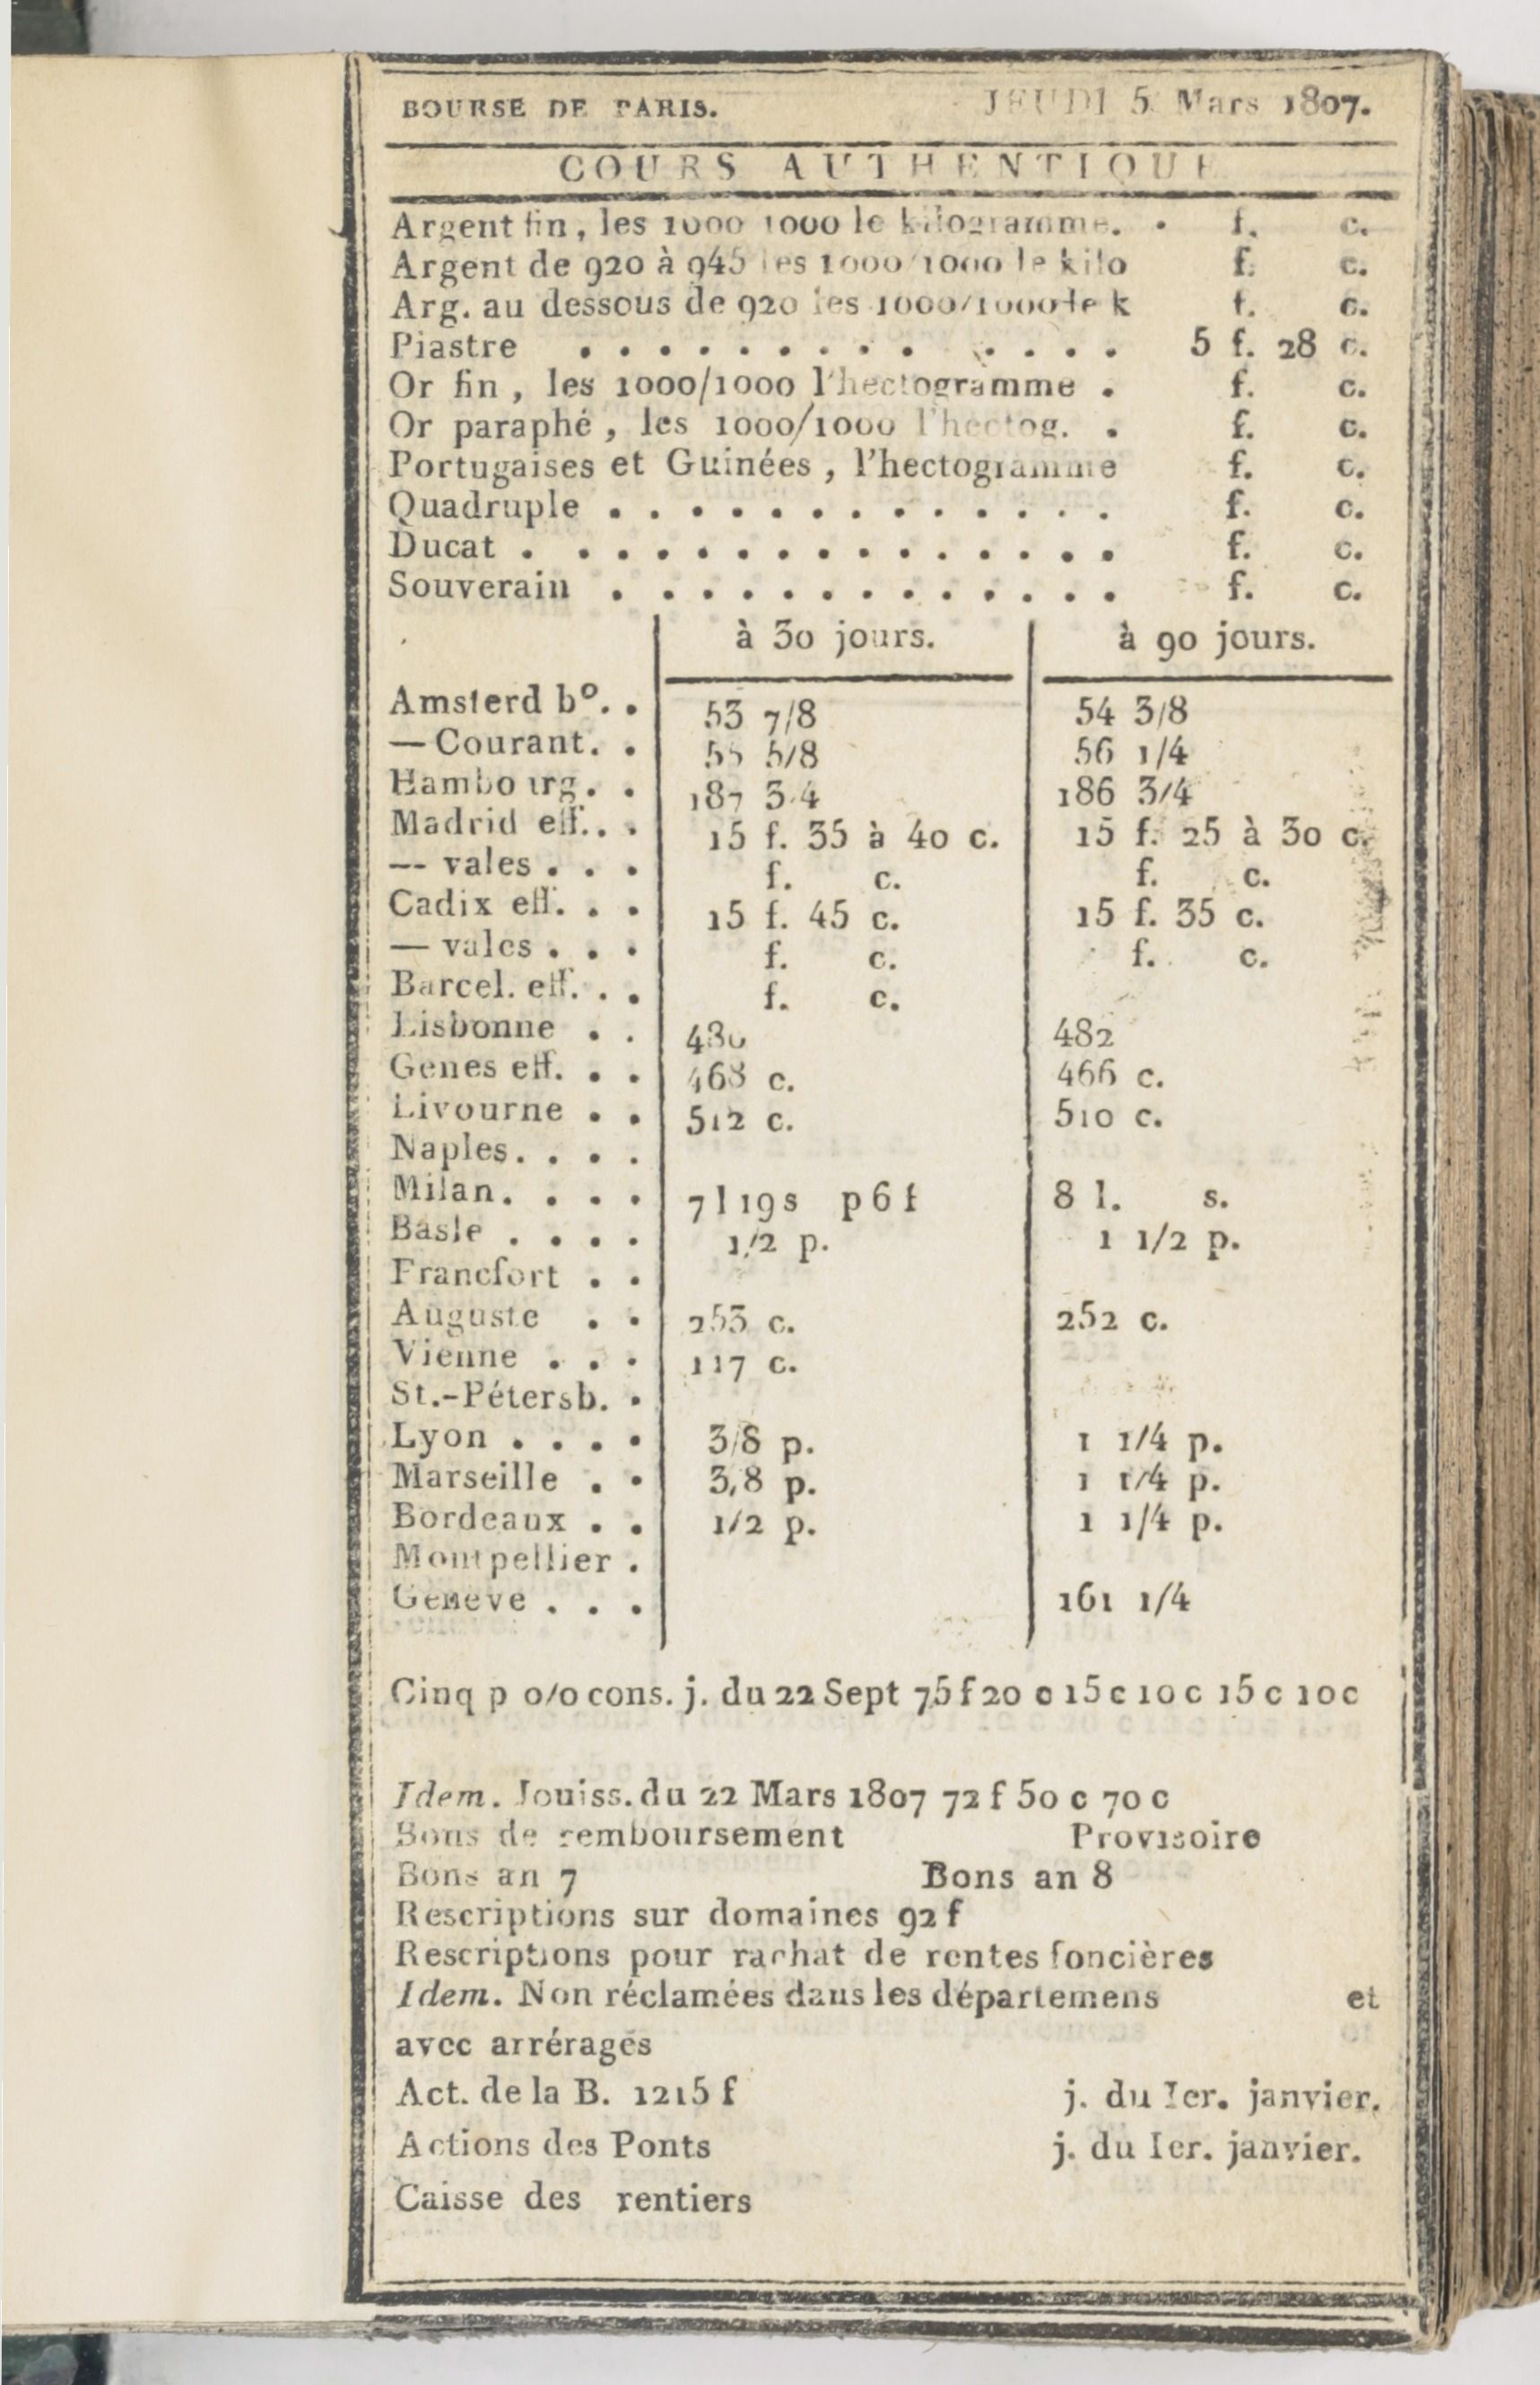 BOURSE DE PARIS. JEUDI 5 Mars 1807.
COURS AUTHENTIQUE
Argent fin, les 1000 1000 le kilogramme. . f. c.
Argent de 920 à 945 les 1000/1000 le kilo f. c.
Arg. au dessous de 920 les 1000/1000 le k f. c.
Piastre . . . . . . . . . . . . . 5 f. 28 c.
Or fin, les 1000/1000 l'hectogramme . f. c.
Or paraphé, les 1000/1000 l'hectog. . f. c.
Portugaises et Guinées, l'hectogramme f. c.
Quadruple . . . . . . . . . . . . . f. c.
Ducat . . . . . . . . . . . . . . . f. c.
Souverain . . . . . . . . . . . . . f. c.
à 30 jours. à 90 jours.
Amsterd bº. . 53 7/8 54 3/8
— Courant. . 55 5/8 56 1/4
Hambourg. . 187 3/4 186 3/4
Madrid eff. . . 15 f. 35 à 40 c. 15 f. 25 à 30 c.
— vales . . . f. c. f. c.
Cadix eff. . . 15 f. 45 c. 15 f. 35 c.
— vales . . . f. c. f. c.
Barcel. eff. . . f. c.
Lisbonne . . 480 482
Genes eff. . . 468 c. 466 c.
Livourne . . 512 c. 510 c.
Naples. . . .
Milan. . . . 7 l 19 s p 6 f 8 l. s.
Basle . . . . 1/2 p. 1 1/2 p.
Francfort . .
Auguste . . 253 c. 252 c.
Vienne . . . 117 c.
St.-Pétersb. .
Lyon . . . . 3/8 p. 1 1/4 p.
Marseille . . 3/8 p. 1 1/4 p.
Bordeaux . . 1/2 p. 1 1/4 p.
Montpellier .
Geneve . . . 161 1/4
Cinq p 0/0 cons. j. du 22 Sept 75 f 20 c 15 c 10 c 15 c 10 c
Idem. Jouiss. du 22 Mars 1807 72 f 50 c 70 c
Bons de remboursement Provisoire
Bons an 7 Bons an 8
Rescriptions sur domaines 92 f
Rescriptions pour rachat de rentes foncières
Idem. Non réclamées dans les départemens et
avec arrérages
Act. de la B. 1215 f j. du Ier. janvier.
Actions des Ponts j. du Ier. janvier.
Caisse des rentiers